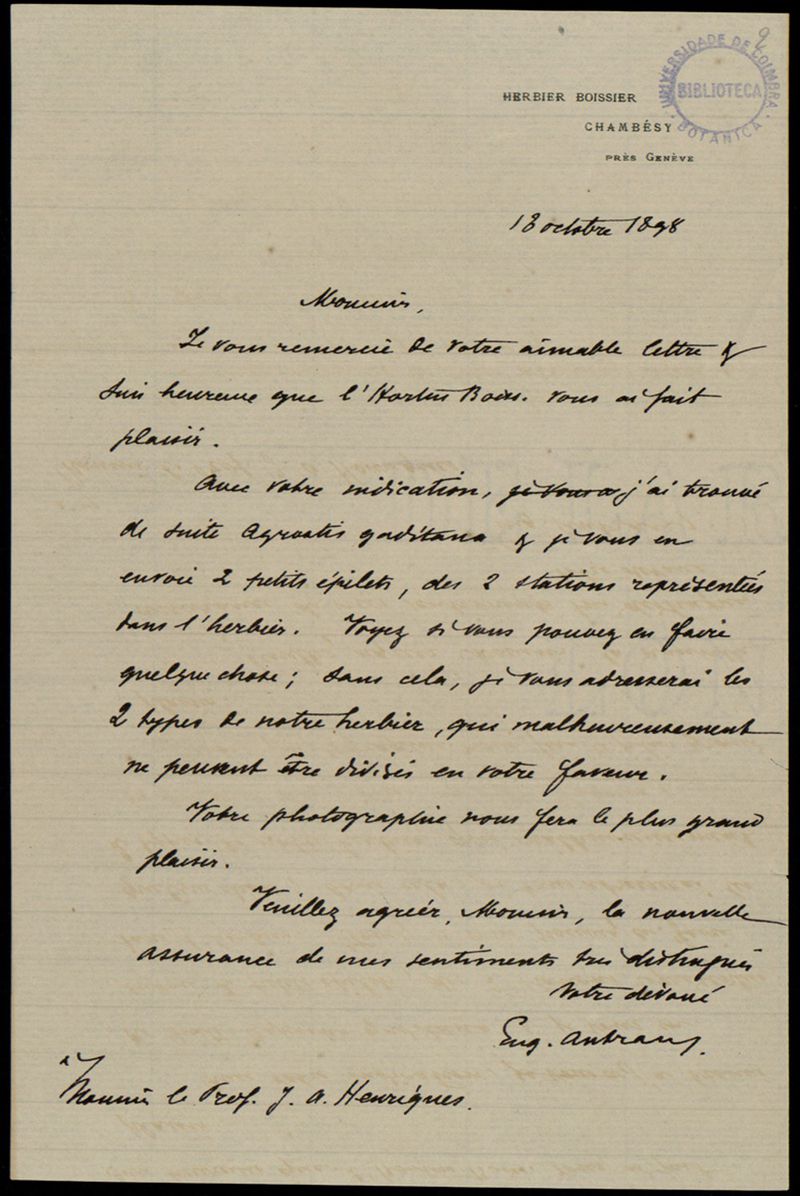 2
UNIVERSIDADE DE COIMBRA
BIBLIOTECA
BOTANICA
HERBIER BOISSIER
CHAMBÉSY
PRÈS GENÈVE
18 octobre 1898
Monsieur,
Je vous remercie de votre aimable lettre &
suis heureux que l'Hortus Boiss. vous ai fait
plaisir.
Avec votre indication, je vous a j'ai trouvé
de suite Agrostis gaditana & je vous en
envoie 2 petits épilets, des 2 stations représentées
dans l'herbier. Voyez si vous pouvez en faire
quelque chose; sans cela, je vous adresserai les
2 types de notre herbier, qui malheureusement
ne peuvent être divisés en votre faveur.
Votre photographie nous fera le plus grand
plaisir.
Veuillez agréer, Monsieur, la nouvelle
assurance de mes sentiments très distingués
Votre dévoué
Eug. Autran
à
Monsieur le Prof. J. A. Henriques.